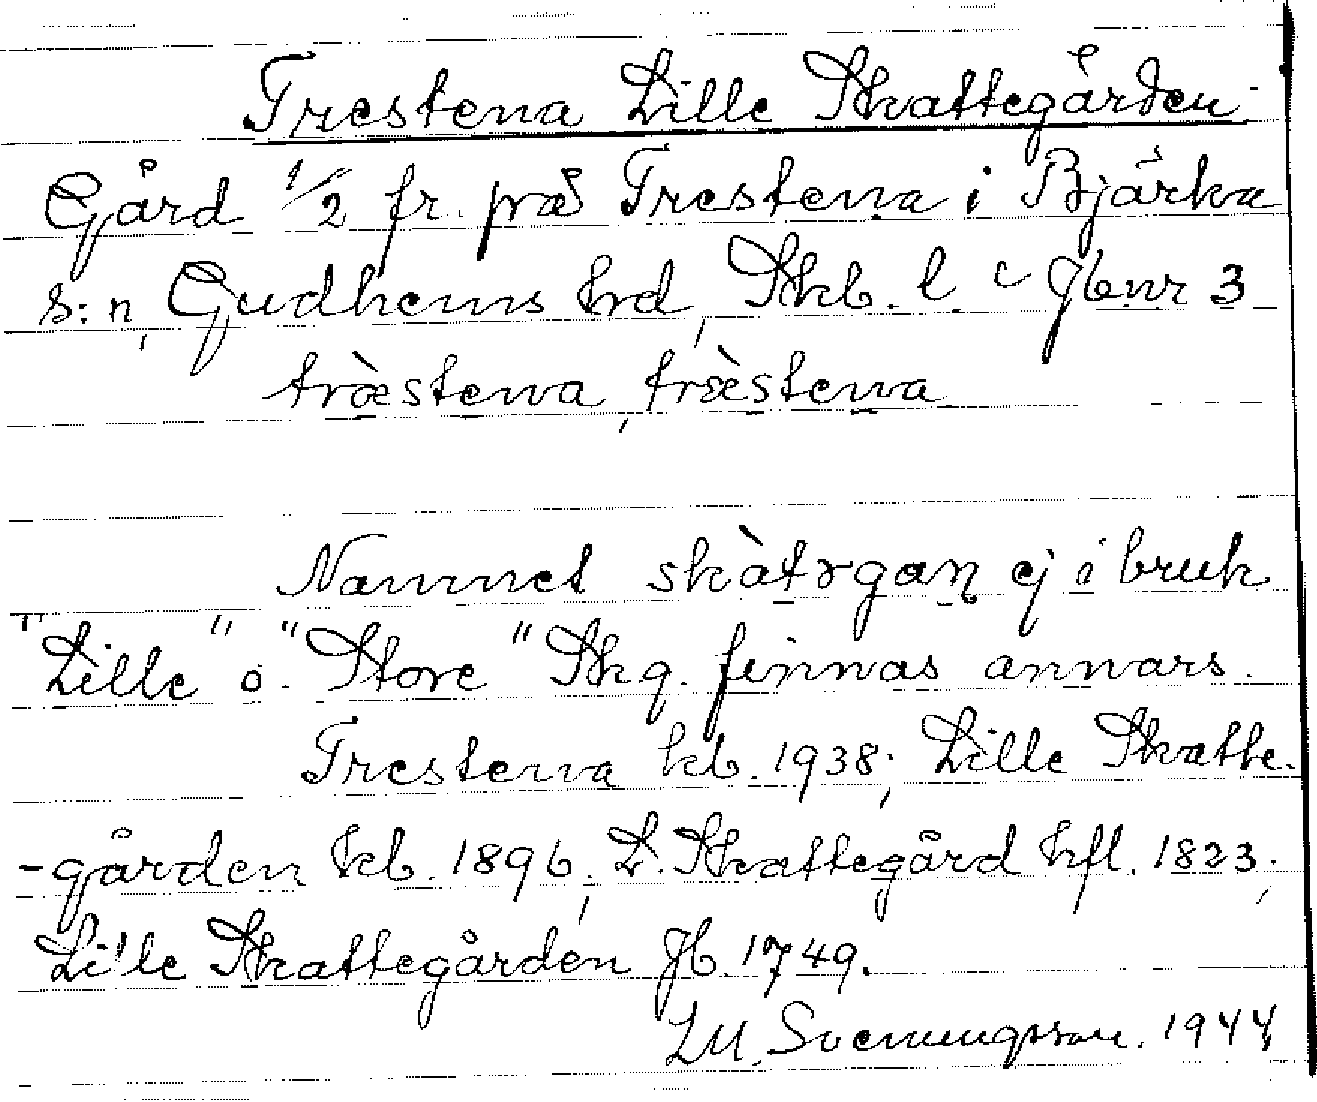 Trestena Lille Skattegården
Gård 1/2 fr. præd Trestena i Bjärka
s:n, Gudhems hrd, Skb. l. Jbnr 3
træ̀stena, træ̀stena
Namnet skàtrgaṇ ej i bruk
"Lille" o. "Store" Skg. finnas annars.
Trestena kb. 1938; Lille Skatte-
-gården kb. 1896; L. Skattegård hfl. 1823;
Lille Skattegården Jb. 1749.
Svenungsson. 1944